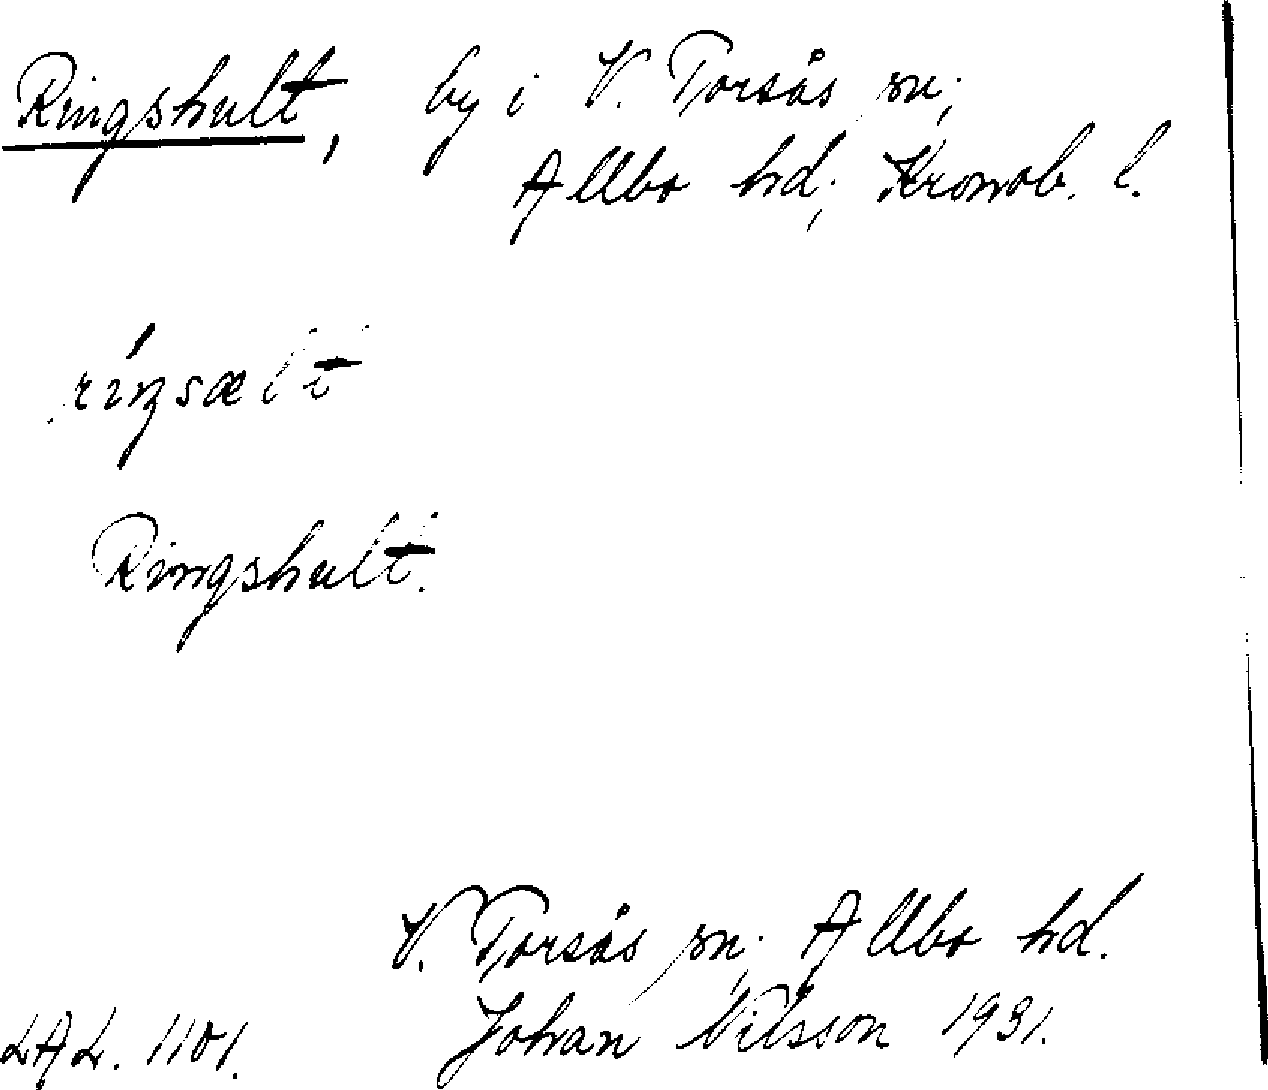 Ringshult, by i V. Torsås sn;
Allbo hd; Kronob. l.
ríŋsælt
Ringshult.
V. Torsås sn; Allbo hd.
LAL. 1101. Johan Nilsson 1931.